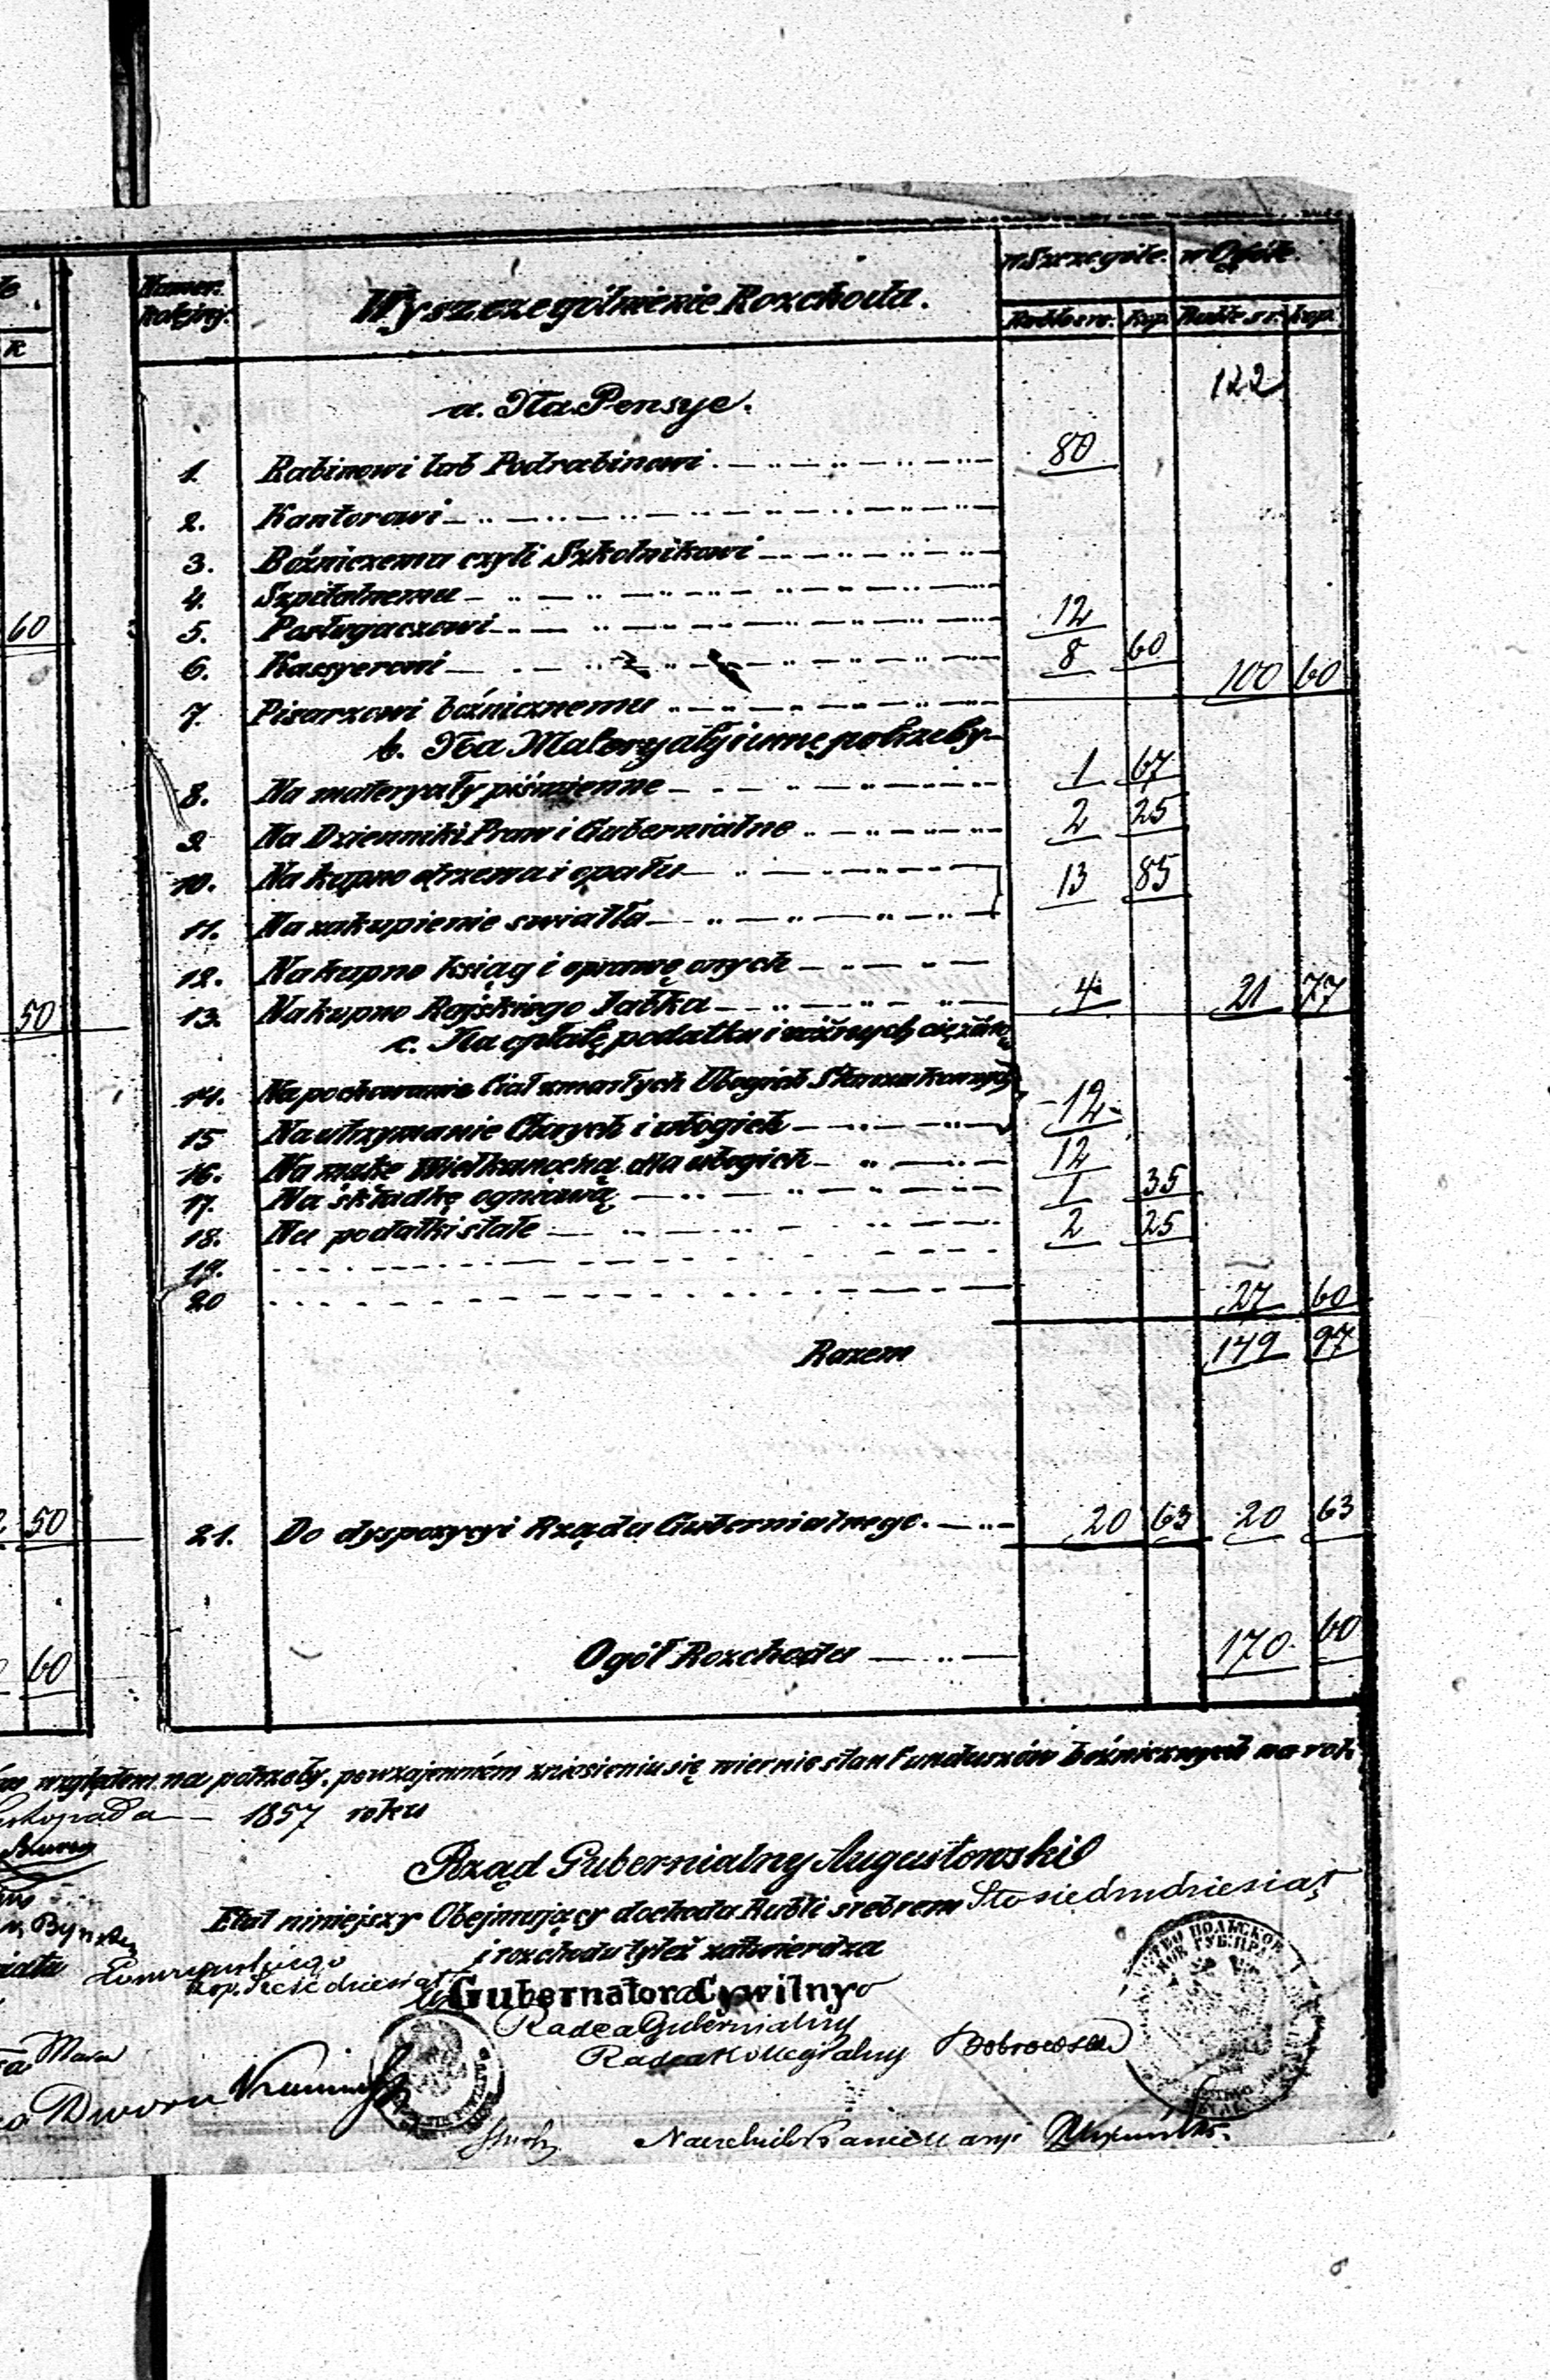 Numer kolejny. Wyszczególnienie Rozchodu. w Szczególe. w Ogóle.
R Rublesre. Kop. Ruble sr. kop.
122
a. Na Pensye.
1. Rabinowi lub Podrabinowi 80
2. Kantorowi
3. Bożniczemu czyli Szkolnikowi
4. Szpitalnemu
60 5. Posługaczowi 12
6. Kassyerowi 8 60 100 60
7. Pisarzowi bóżnicznemu
b. Na Materyały i inne potrzeby
8. Na materyały piśmienne 1 67
9 Na Dzienniki Praw i Gubernialne 2 25
10. Na kupno drzewa i opału 13 85
11. Na zakupienie swiatła
12. Na kupno ksiąg i oprawę onych
50 13. Na kupno Rajskiego Jabłka 4 21 77
c. Na opłatę podatku i różnych ciężarów
14. Na pochowanie Ciał zmarłych Ubogich Starozakonnych 12
15 Na utrzymanie Chorych i ubogich
16. Na mąkę Wielkanocną dla ubogich 12
17. Na składkę ogniową 1 35
18. Na podatki stałe 2 25
19.
20 27 60
Razem 149 97
50 21. Do dyspozycyi Rządu Gubernialnego. 20 63 20 63
60 Ogół Rozchodu 170 60
względem na potrzeby, powzajemném zniesieniu się wiernie stan Funduszów bóżnicznych na rok
Listopada 1857 roku
Rząd Gubernialny Augustowski
Etat niniejszy Obejmujący dochodu Rubli srebrem Sto siedmdziesiąt
kop. sześćdziesiąt i rozchodu tyleż zatwierdza
Gubernator Cywilny
Radca Gubernialny
Radca Kollegialny Dobrowolski
Dworu
Naczelnik Kancellaryi
6